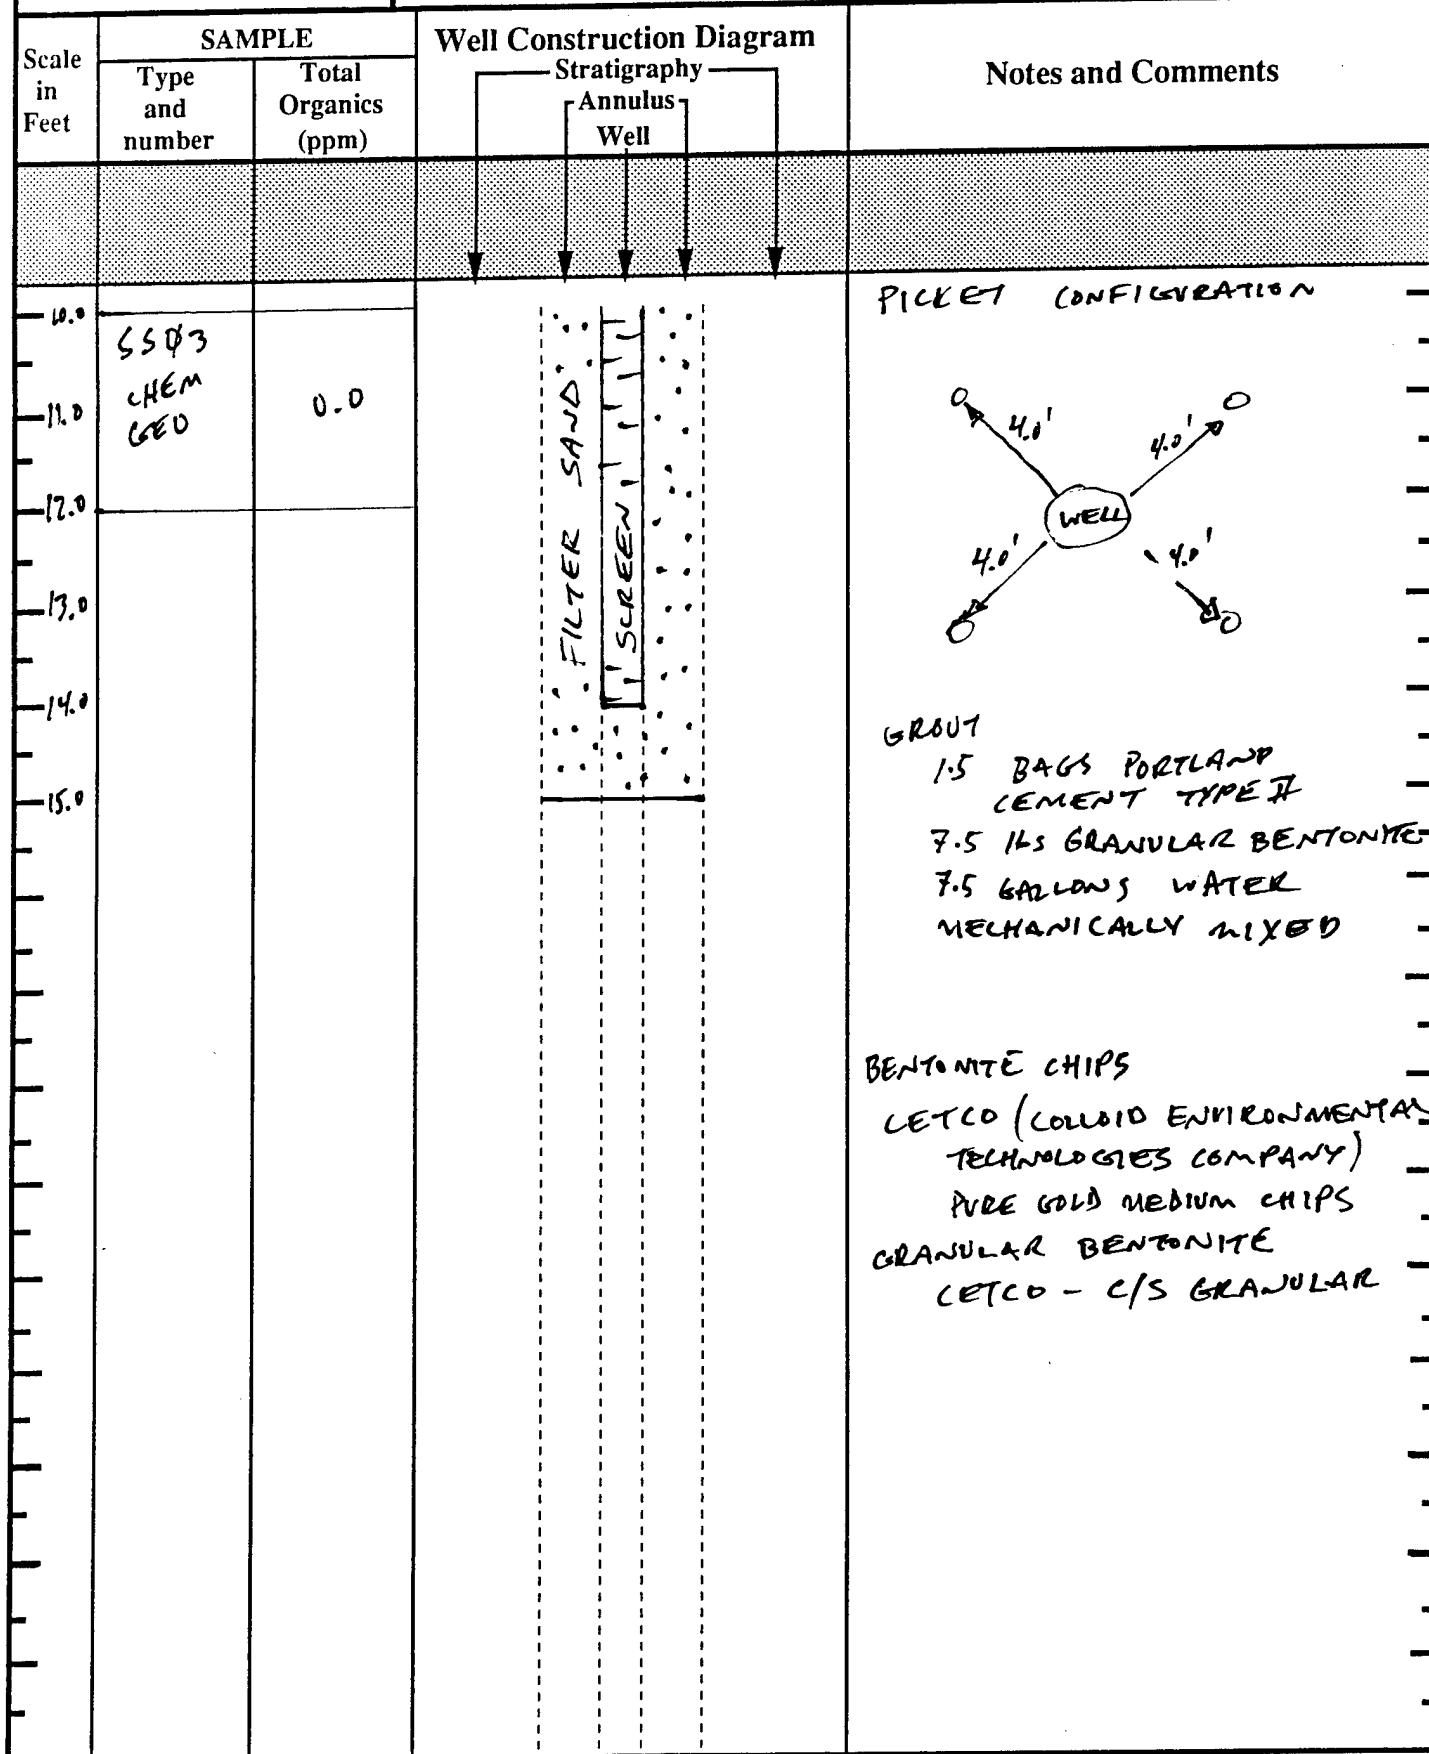 Scale
in
Feet
SAMPLE
Type
and
number
Total
Organics
(ppm)
Well Construction Diagram
Stratigraphy
Annulus
Well
Notes and Comments
10.0
11.0
12.0
13.0
14.0
15.0
SSØ3
CHEM
GEO
0.0
FILTER SAND
SCREEN
PICKET CONFIGURATION
4.0'
4.0'
WELL
4.0'
4.0'
GROUT
1.5 BAGS PORTLAND
CEMENT TYPE II
7.5 lbs GRANULAR BENTONITE
7.5 GALLONS WATER
MECHANICALLY MIXED
BENTONITE CHIPS
CETCO (COLLOID ENVIRONMENTAL
TECHNOLOGIES COMPANY)
PURE GOLD MEDIUM CHIPS
GRANULAR BENTONITE
CETCO - C/S GRANULAR